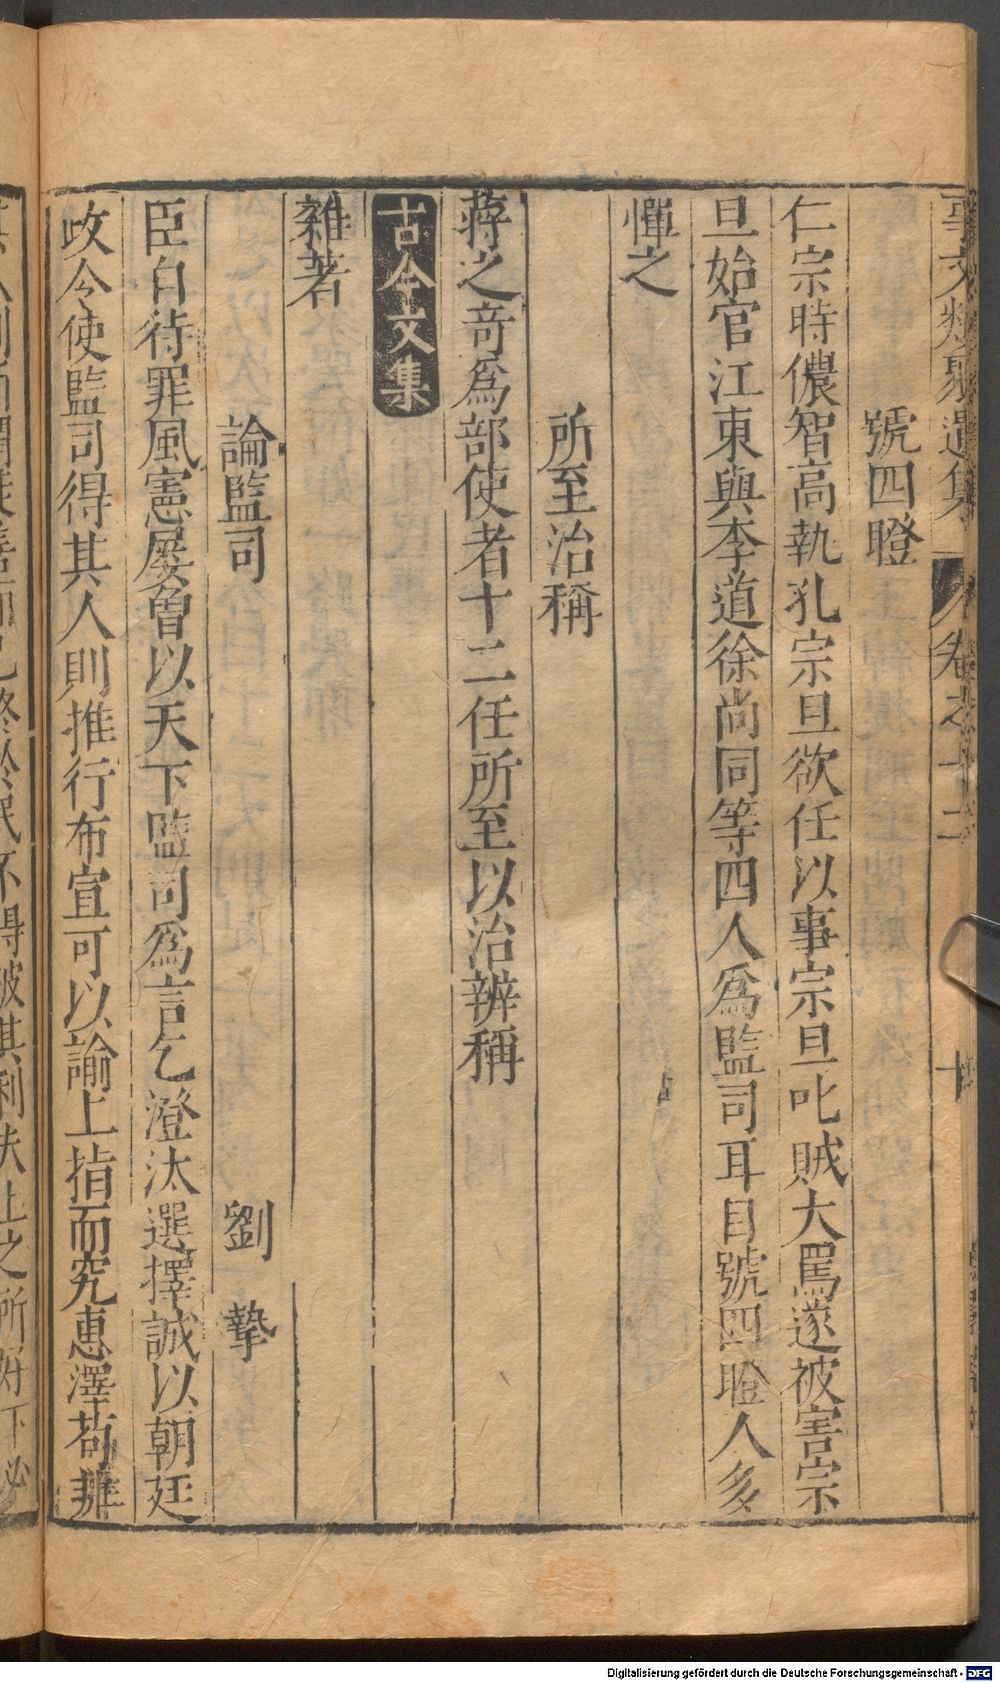 事文類聚遺集 卷之十二 十
號四瞪
仁宗時儂智高執孔宗旦欲任以事宗旦叱賊大罵遂被害宗
旦始官江東與李道徐尚同等四人爲監司耳目號四瞪人多
憚之
所至治稱
蔣之奇爲部使者十二任所至以治辦稱
古今文集
雜著
論監司 劉摯
臣自待罪風憲屢曾以天下監司爲言乞澄汰選擇誠以朝廷
政令使監司得其人則推行布宣可以諭上指而究惠澤苟非
Digitalisierung gefördert durch die Deutsche Forschungsgemeinschaft - DFG